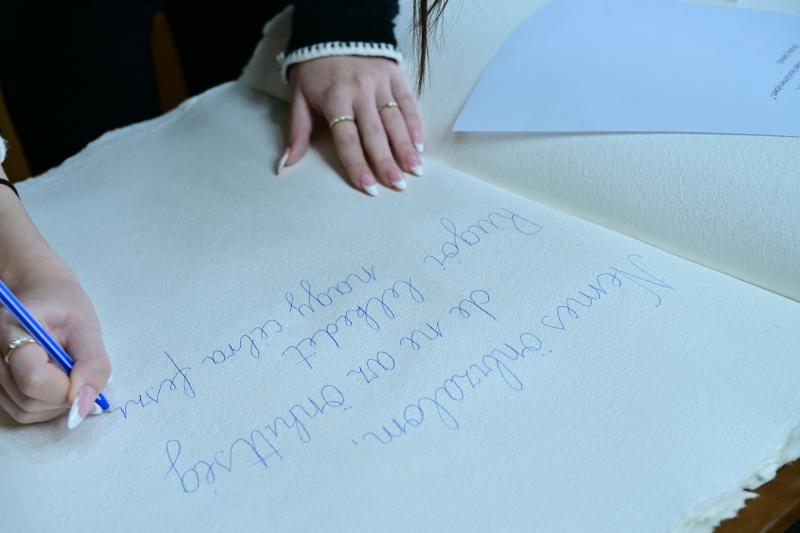 Nemes önbizalom,
de ne az önhittség
Rugói lelkedet
nagy célra fesz